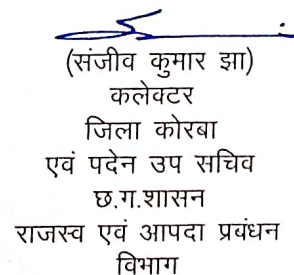 (संजीव कुमार झा)
कलेक्टर
जिला कोरबा
एवं पदेन उप सचिव
छ.ग.शासन
राजस्व एवं आपदा प्रबंधन
विभाग